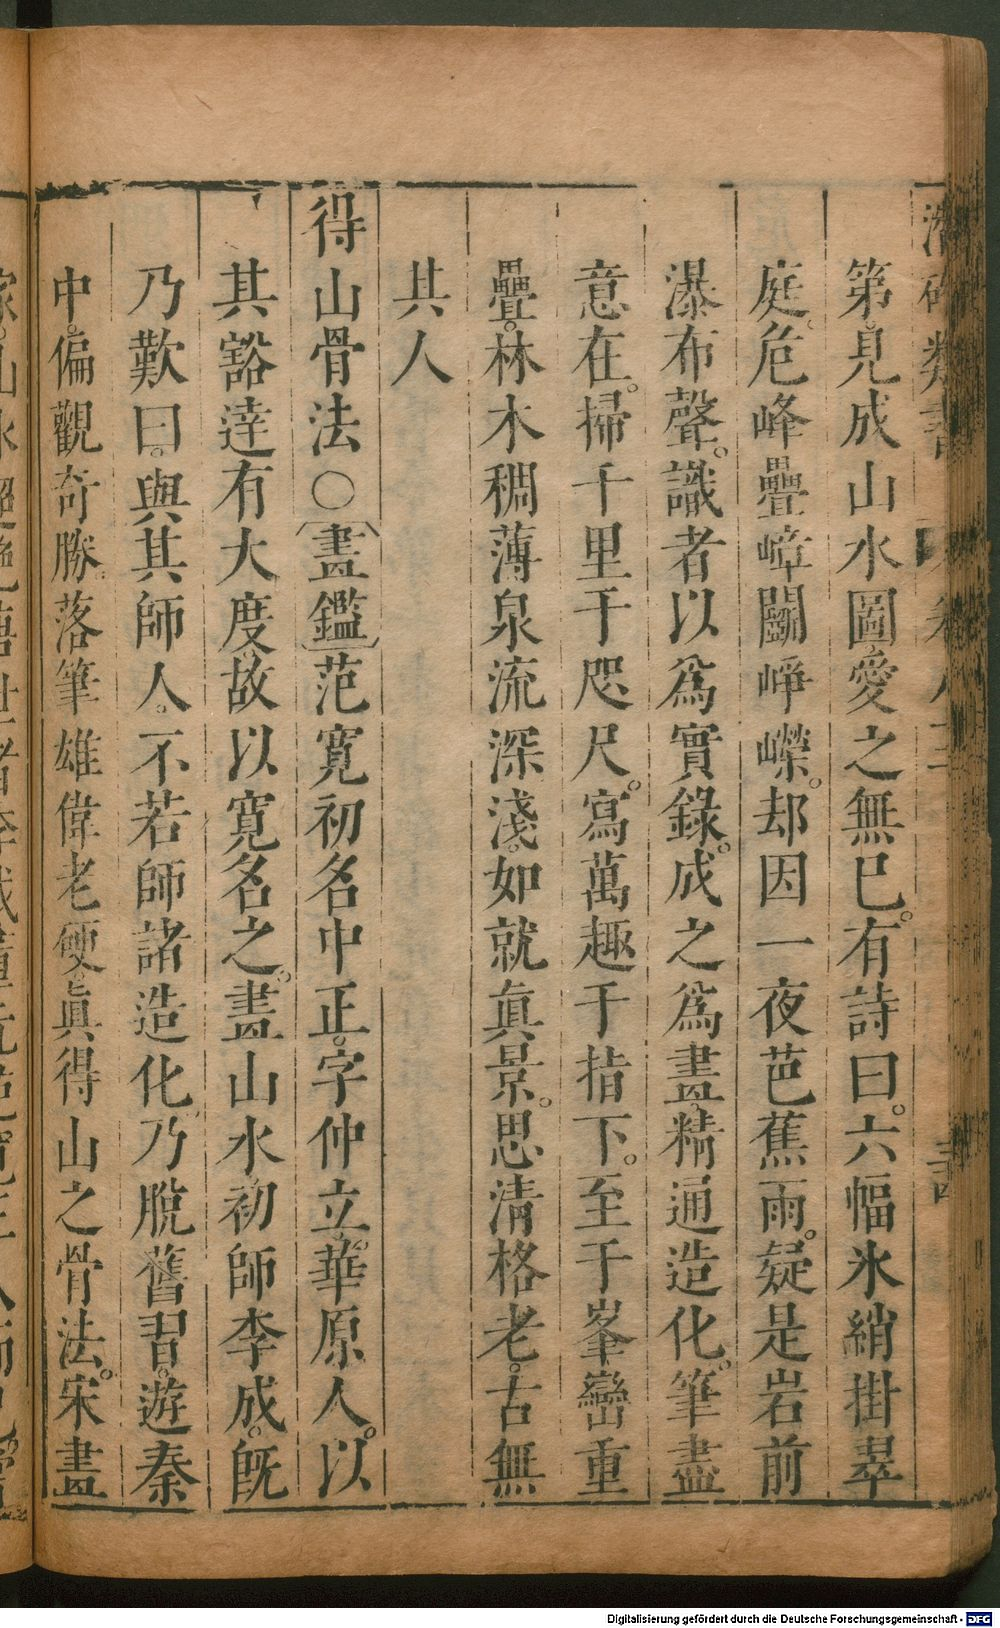 潛確類書 卷八
第。見成山水圖。愛之無巳。有詩曰。六幅氷綃掛翠
庭。危峰疊嶂鬭崢嶸。却因一夜芭蕉雨。疑是岩前
瀑布聲。識者以爲實錄。成之爲畫。精通造化。筆盡
意在。掃千里于咫尺。寫萬趣于指下。至于峯巒重
疊。林木稠薄泉流深淺。如就眞景。思清格老。古無
其人
得山骨法○〔畫鑑〕范寬初名中正。字仲立。華原人。以
其豁達有大度。故以寬名之。畫山水初師李成。旣
乃歎曰。與其師人。不若師諸造化。乃脫舊習。遊秦
中。徧觀奇勝。落筆雄偉老硬。眞得山之骨法。宋畫
Digitalisierung gefördert durch die Deutsche Forschungsgemeinschaft - DFG